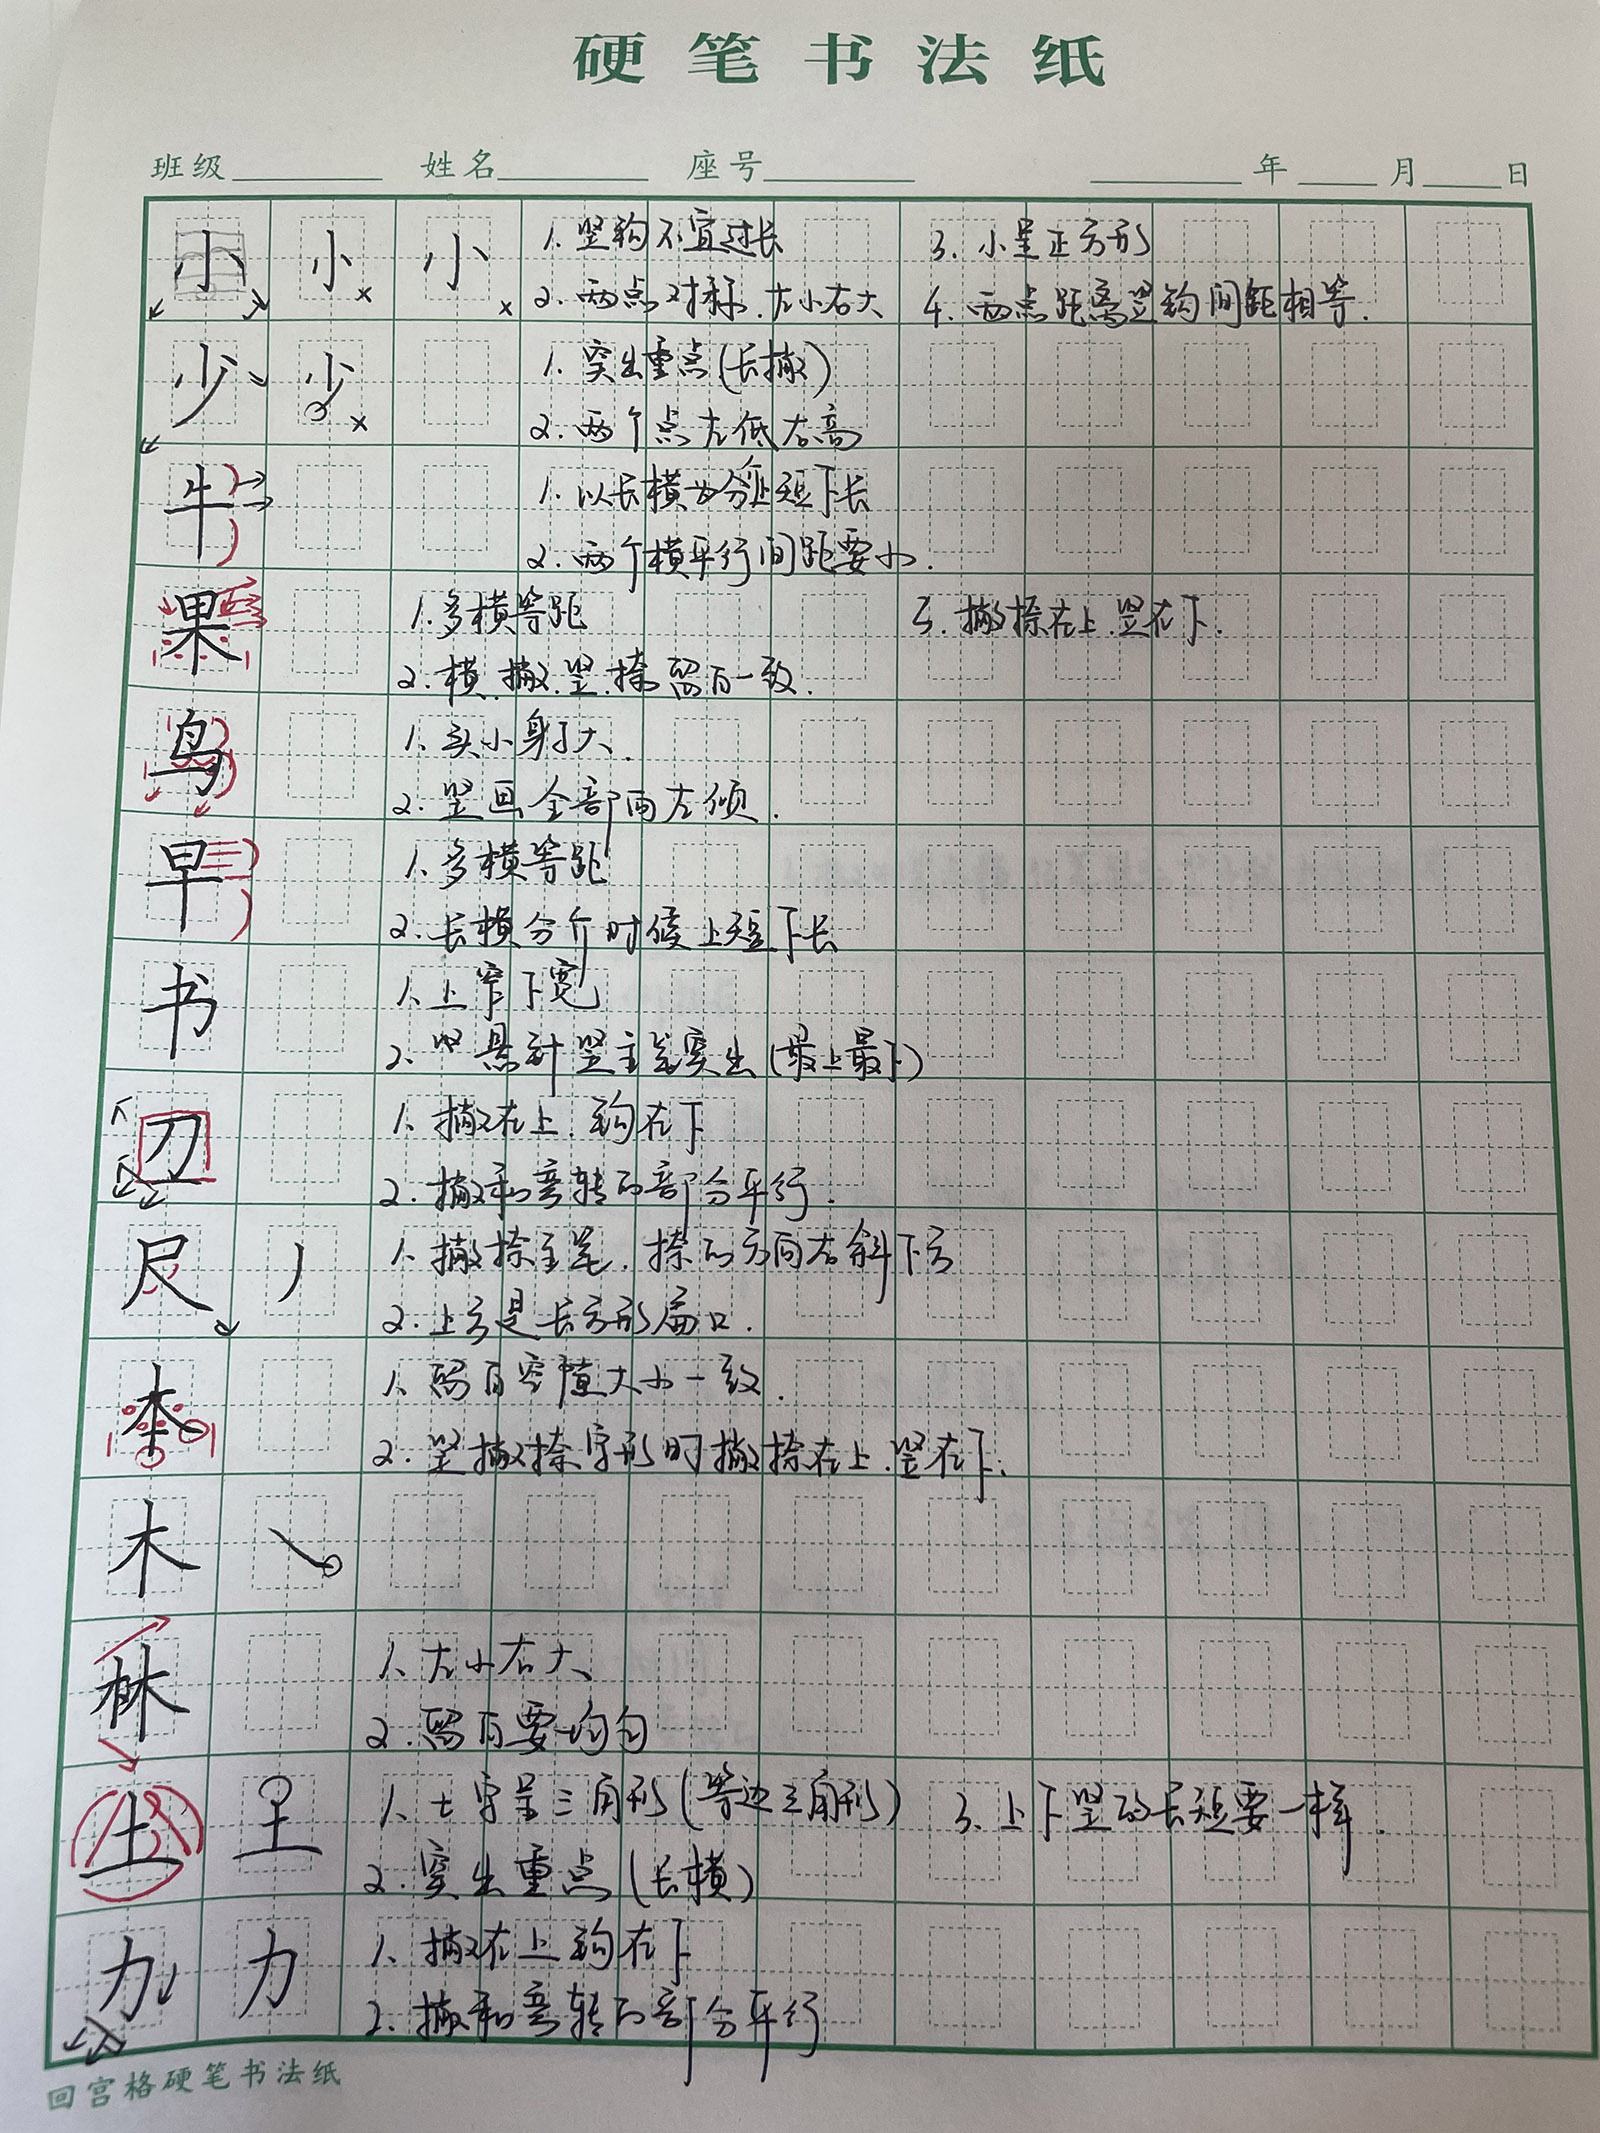 硬笔书法纸
班级 姓名 座号 年 月 日
小 小 小 1. 竖钩不宜过长 3. 小呈正方形
2. 两点对称. 左小右大 4. 两点距离竖钩间距相等.
少 少 1. 突出重点(长撇)
2. 两个点左低右高
牛 1. 以长横为分上短下长
2. 两个横平行间距要小.
果 1. 多横等距 3. 撇捺在上. 竖在下.
2. 横. 撇. 竖. 捺留白一致.
鸟 1. 头小身子大.
2. 竖画全部向左倾.
早 1. 多横等距
2. 长横分介时候上短下长
书 1. 上窄下宽
2. 竖悬针竖主笔突出(最上最下)
刀 1. 撇在上. 钩在下
2. 撇和弯转的部分平行.
尺 丿 1. 撇捺主笔. 捺的方向右斜下方
2. 上方是长方形扁口.
本 1. 留白空隙大小一致.
2. 竖撇捺字形时撇捺在上. 竖在下.
木
林 1. 左小右大
2. 留白要均匀
土 土 1. 土字呈三角形(等边三角形) 3. 上下竖的长短要一样.
2. 突出重点(长横)
力 力 1. 撇在上钩在下
2. 撇和弯转的部分平行
回宫格硬笔书法纸